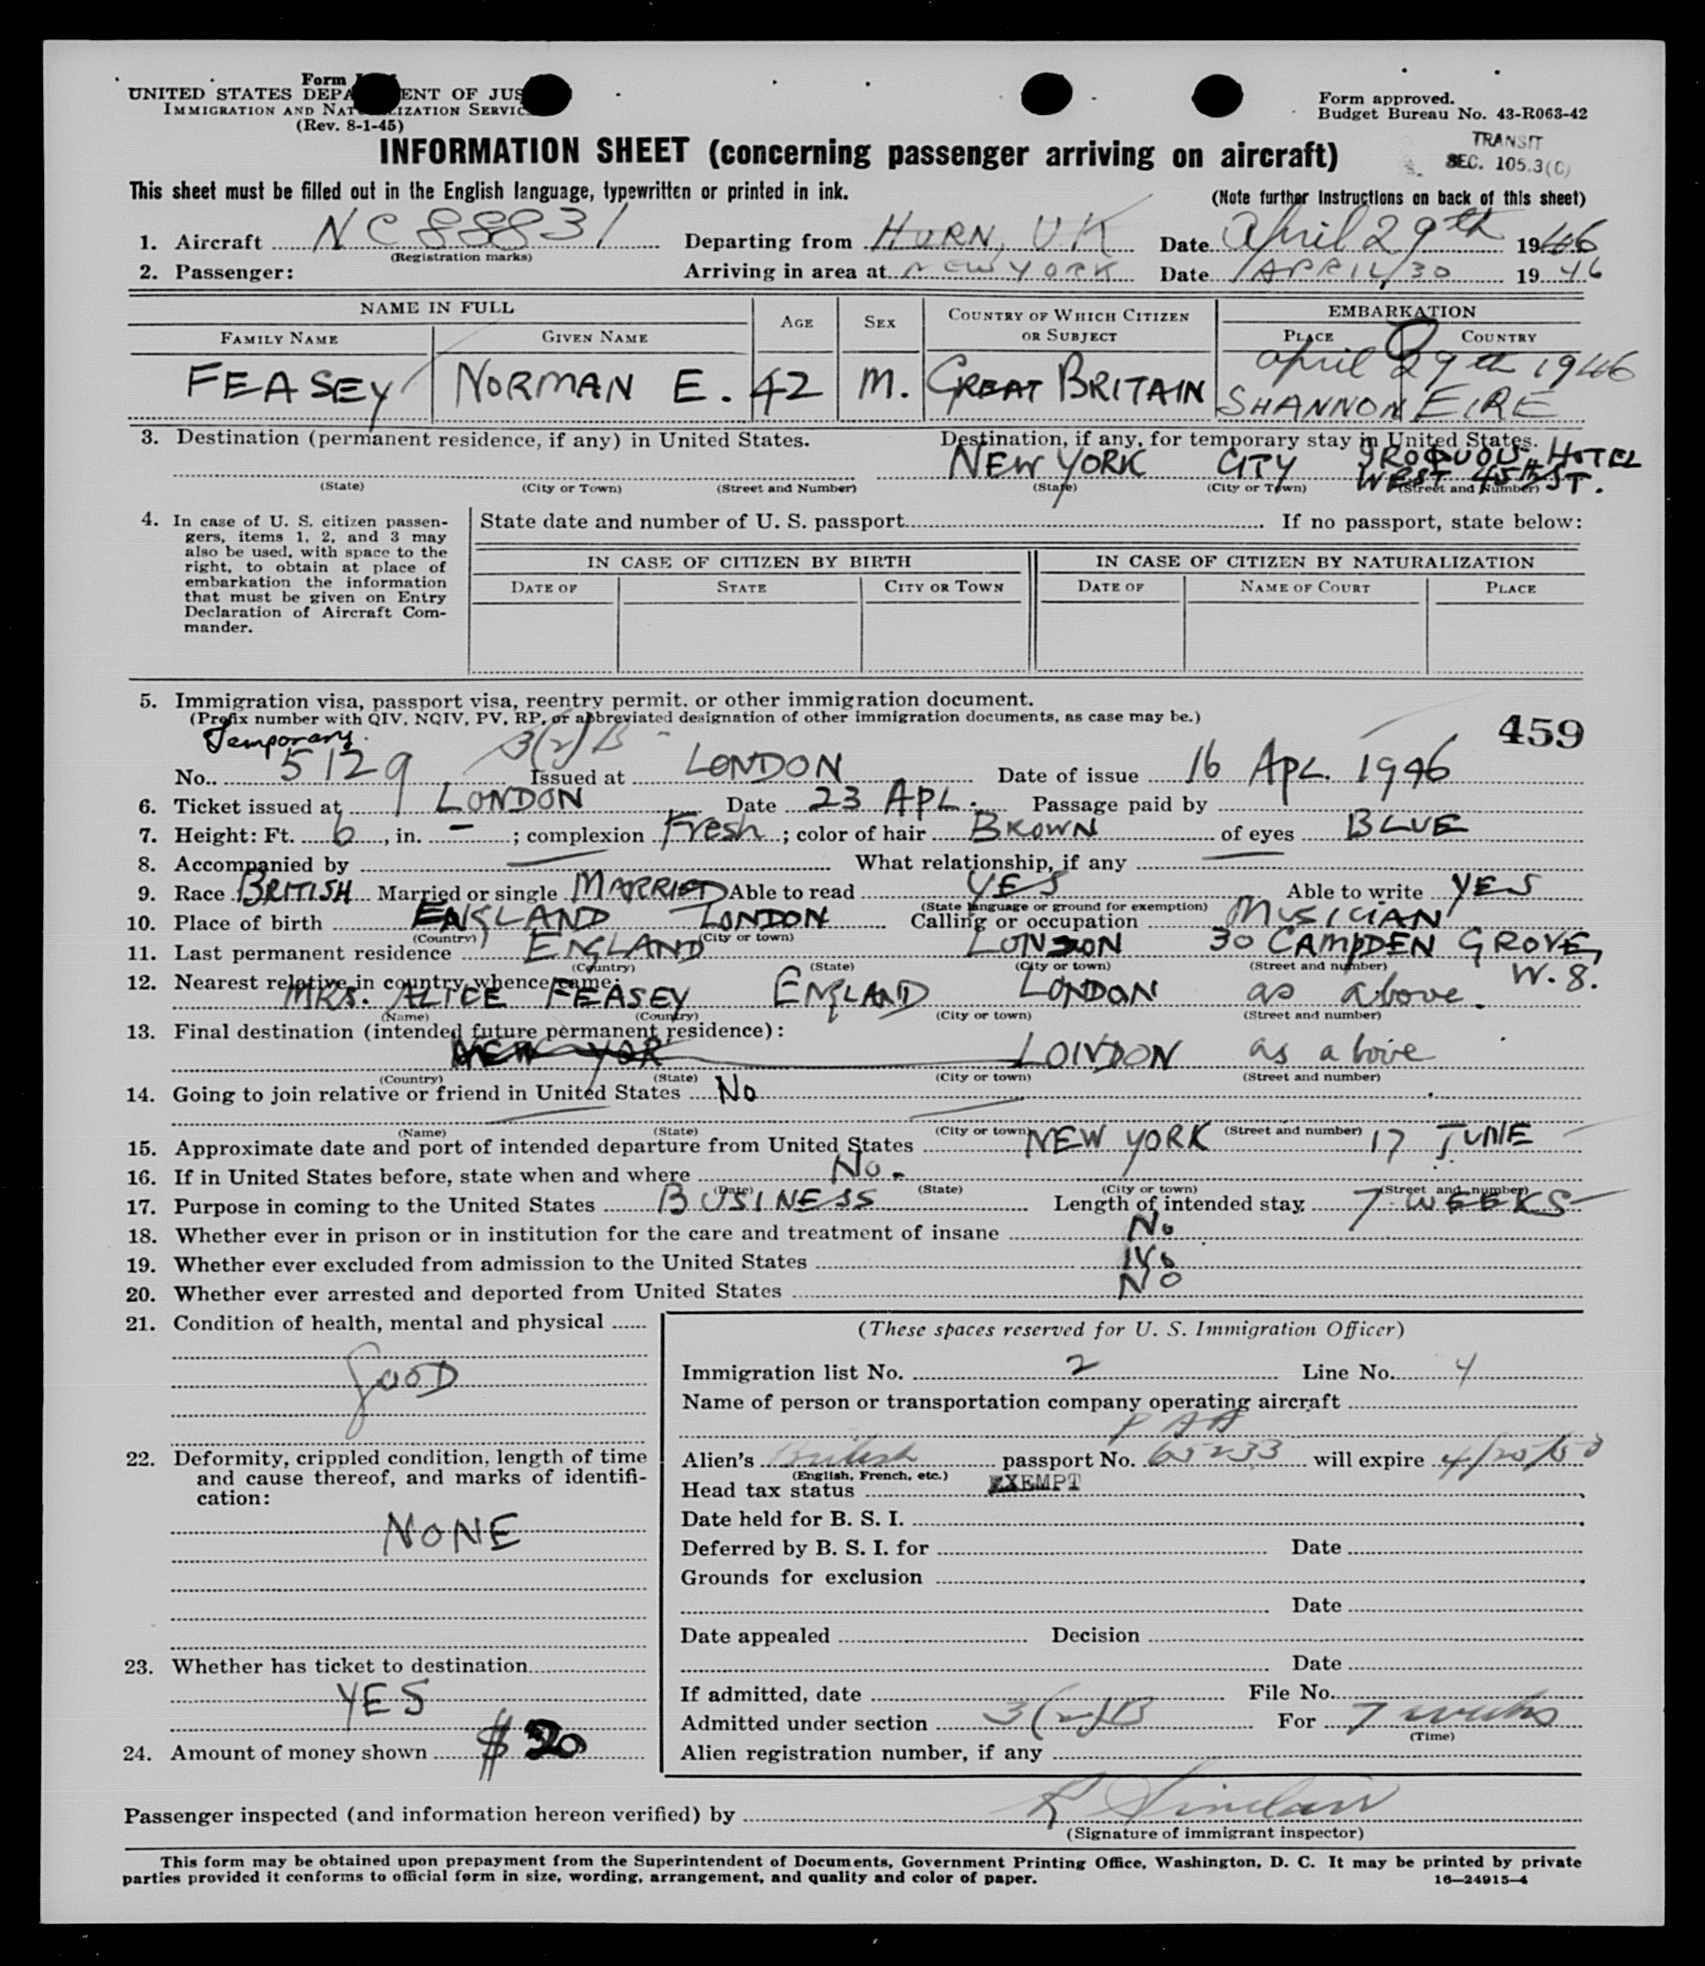 Form
UNITED STATES DEPA ENT OF JUS
IMMIGRATION AND NAT IZATION SERVIC
(Rev. 8-1-45)
Form approved.
Budget Bureau No. 43-R063-42
TRANSIT
SEC. 105.3(C)
INFORMATION SHEET (concerning passenger arriving on aircraft)
This sheet must be filled out in the English language, typewritten or printed in ink. (Note further instructions on back of this sheet)
1. Aircraft NC 88831 Departing from HURN, UK Date April 29th 1946
(Registration marks)
2. Passenger: Arriving in area at NEW YORK Date APRIL 30 1946
NAME IN FULL AGE SEX COUNTRY OF WHICH CITIZEN OR SUBJECT EMBARKATION
FAMILY NAME GIVEN NAME PLACE COUNTRY
April 29th 1946
FEASEY NORMAN E. 42 M. GREAT BRITAIN SHANNON EIRE
3. Destination (permanent residence, if any) in United States. Destination, if any, for temporary stay in United States.
NEW YORK CITY IROQUOIS HOTEL
WEST 45th ST.
(State) (City or Town) (Street and Number) (State) (City or Town) (Street and Number)
4. In case of U. S. citizen passengers, items 1, 2, and 3 may
also be used, with space to the
right, to obtain at place of
embarkation the information
that must be given on Entry
Declaration of Aircraft Commander.
State date and number of U. S. passport If no passport, state below:
IN CASE OF CITIZEN BY BIRTH IN CASE OF CITIZEN BY NATURALIZATION
DATE OF STATE CITY OR TOWN DATE OF NAME OF COURT PLACE
5. Immigration visa, passport visa, reentry permit, or other immigration document.
(Prefix number with QIV, NQIV, PV, RP, or abbreviated designation of other immigration documents, as case may be.)
459
Temporary. 3(2)B
No. 5129 Issued at LONDON Date of issue 16 APL. 1946
6. Ticket issued at LONDON Date 23 APL. Passage paid by
7. Height: Ft. 6, in. –; complexion Fresh; color of hair BROWN of eyes BLUE
8. Accompanied by — What relationship, if any —
9. Race BRITISH Married or single MARRIED Able to read YES Able to write YES
(State language or ground for exemption)
10. Place of birth ENGLAND LONDON Calling or occupation MUSICIAN
(Country) (City or town)
11. Last permanent residence ENGLAND LONDON 30 CAMPDEN GROVE,
W.8.
(Country) (State) (City or town) (Street and number)
12. Nearest relative in country whence came:
MRS. ALICE FEASEY ENGLAND LONDON as above.
(Name) (Country) (City or town) (Street and number)
13. Final destination (intended future permanent residence):
NEW YOR LONDON as above
(Country) (State) (City or town) (Street and number)
14. Going to join relative or friend in United States No
(Name) (State) (City or town) (Street and number)
15. Approximate date and port of intended departure from United States NEW YORK 17 JUNE
16. If in United States before, state when and where No.
(Date) (State) (City or town) (Street and number)
17. Purpose in coming to the United States BUSINESS Length of intended stay 7 WEEKS
18. Whether ever in prison or in institution for the care and treatment of insane No
19. Whether ever excluded from admission to the United States No
20. Whether ever arrested and deported from United States NO
21. Condition of health, mental and physical
GOOD
22. Deformity, crippled condition, length of time
and cause thereof, and marks of identification:
NONE
23. Whether has ticket to destination
YES
24. Amount of money shown $ 20
(These spaces reserved for U. S. Immigration Officer)
Immigration list No. 2 Line No. 4
Name of person or transportation company operating aircraft
PAA
Alien's British passport No. 65233 will expire
(English, French, etc.)
Head tax status EXEMPT
Date held for B. S. I.
Deferred by B. S. I. for Date
Grounds for exclusion
Date
Date appealed Decision
Date
If admitted, date File No.
Admitted under section 3(2)B For 7 weeks
(Time)
Alien registration number, if any
Passenger inspected (and information hereon verified) by R Sinclair
(Signature of immigrant inspector)
This form may be obtained upon prepayment from the Superintendent of Documents, Government Printing Office, Washington, D. C. It may be printed by private
parties provided it conforms to official form in size, wording, arrangement, and quality and color of paper.
16—24915-4